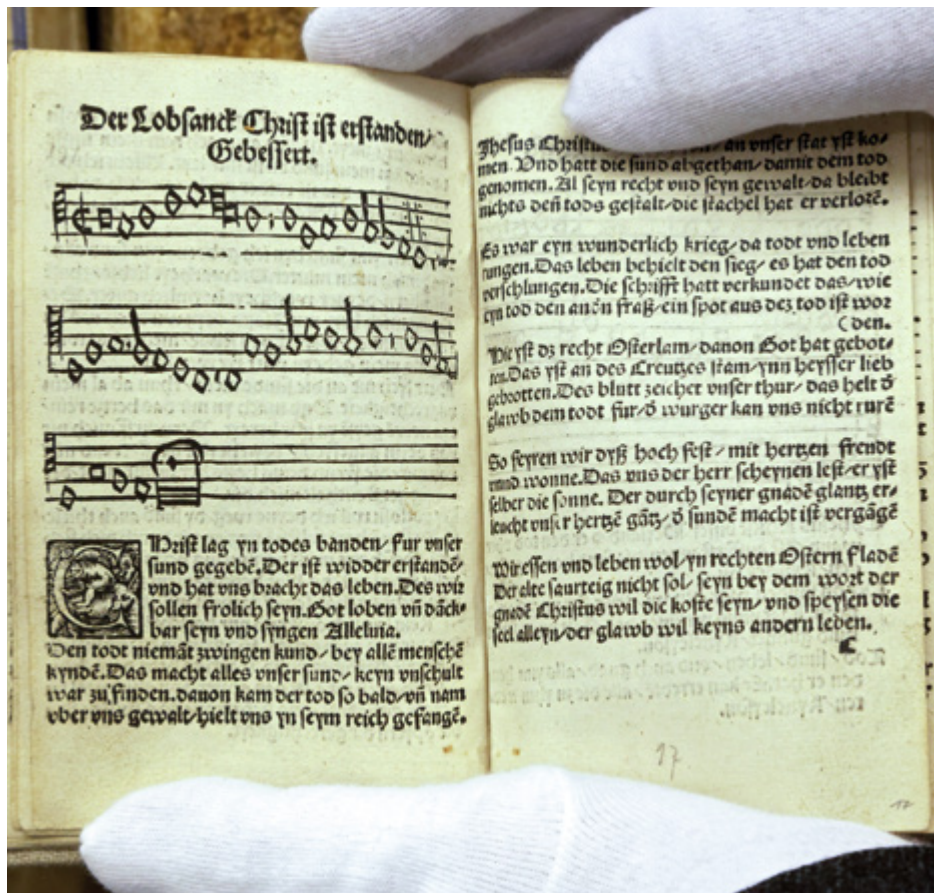 Der Lobsanck Christ ist erstanden/
Gebessert.
CHrist lag yn todes banden/ fur vnser
sund gegebē. Der ist widder erstandē/
vnd hat vns bracht das leben. Des wir
sollen frolich seyn. Got loben vñ dāck-
bar seyn vnd syngen Alleluia.
Den todt niemāt zwingen kund/ bey allē menschē
kyndē. Das macht alles vnser sund/ keyn vnschult
war zu finden. dauon kam der tod so bald/ vñ nam
vber vns gewalt/ hielt vns yn seym reich gefangē.
Jhesus Christus an vnser stat yst ko-
men. Vnd hatt die sund abgethan/ damit dem tod
genomen. Al seyn recht vnd seyn gewalt/ da bleibt
nichts deñ tods gestalt/ die stachel hat er verlorē.
Es war eyn wunderlich krieg/ da todt vnd leben
rungen. Das leben behielt den sieg/ es hat den tod
verschlungen. Die schrifft hatt verkundet das/ wie
eyn tod den andn fraß/ ein spot aus dez tod ist wor
(den.
Hie yst dz recht Osterlam/ dauon Got hat gebot-
ten. Das yst an des Creutzes stam/ ynn heysser lieb
gebrotten. Des blutt zeichet vnser thur/ das helt d̄
glawb dem todt fur/ d̄ wurger kan vns nicht rurē
So feyren wir dyß hoch fest/ mit hertzen frendt
vnnd wonne. Das vns der herr scheynen lest/ er yst
selber die sonne. Der durch seyner gnadē glantz er-
leucht vnser hertzē gātz/ d̄ sundē macht ist vergāgē
Wir essen vnd leben wol/ yn rechten Ostern fladē
Der alte saurteig nicht sol/ seyn bey dem wort der
gnadē Christus wil die koste seyn/ vnd speysen die
seel alleyn/ der glawb wil keyns andern leben.
17
17